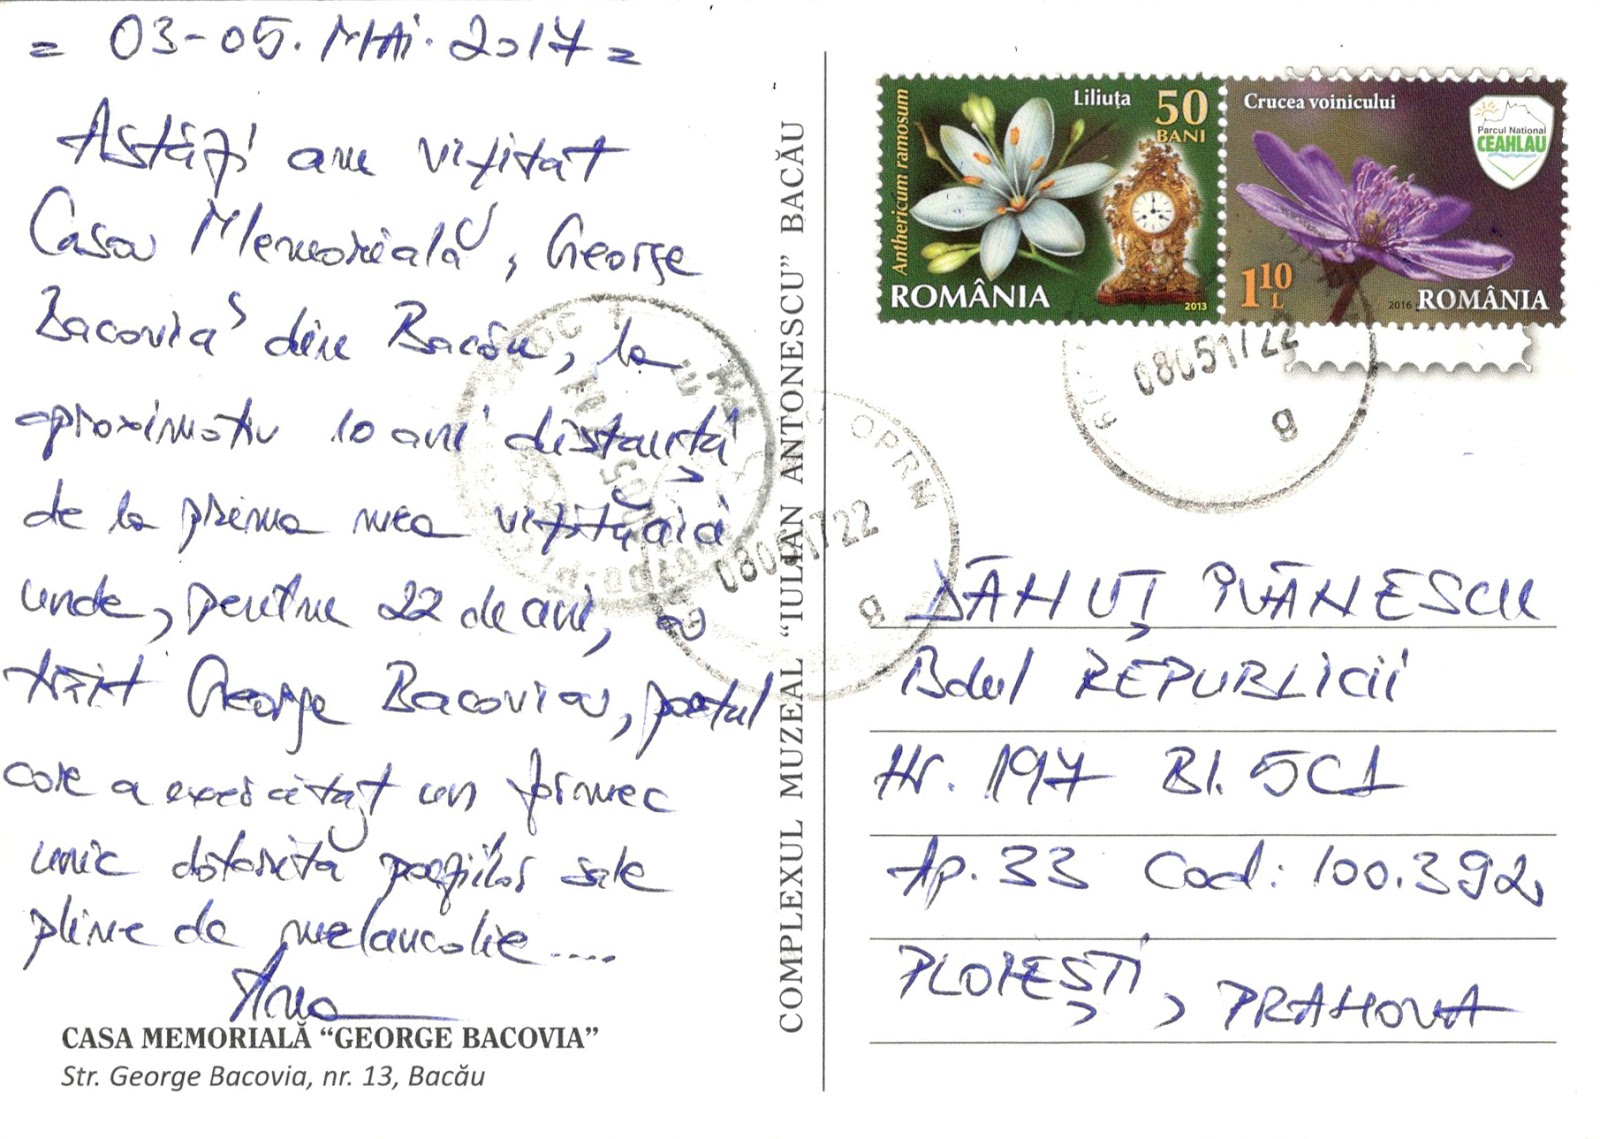 = 03-05. MAI. 2017 =
Astăzi am vizitat
Casa Memorială, George
Bacovia" din Bacău, la
aproximativ 10 ani distanță
de la prima mea vizită aici
unde, pentru 22 de ani, a
trăit George Bacovia, poetul
care a exercitat un farmec
unic datorită poeziilor sale
pline de melancolie....
Ana
CASA MEMORIALĂ “GEORGE BACOVIA”
Str. George Bacovia, nr. 13, Bacău
COMPLEXUL MUZEAL “IULIAN ANTONESCU” BACĂU
Liliuța
50
BANI
Anthericum ramosum
ROMÂNIA
2013
Crucea voinicului
Parcul Național
CEAHLAU
1 10
L
2016 ROMÂNIA
080517/22
g
080517/22
g
DĂNUȚ IVĂNESCU
Bdul REPUBLICII
Nr. 197 Bl. 5C1
Ap. 33 Cod: 100.392,
PLOIEȘTI, PRAHOVA